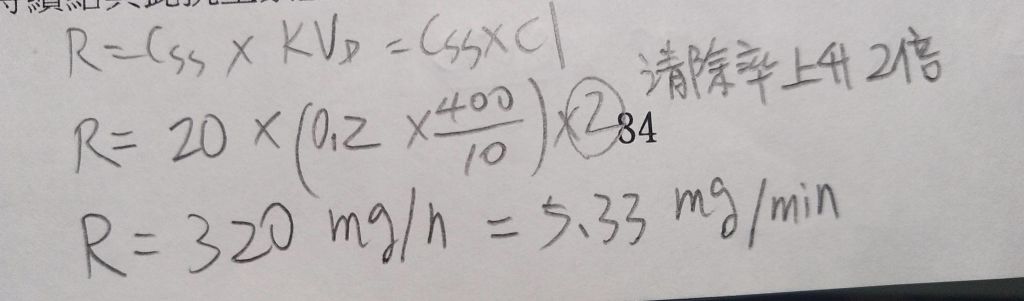 R=Css × KVD = Css×Cl
清除率上升2倍
R= 20 × (0.2 × 400/10) × 2
34
R= 320 mg/h = 5.33 mg/min